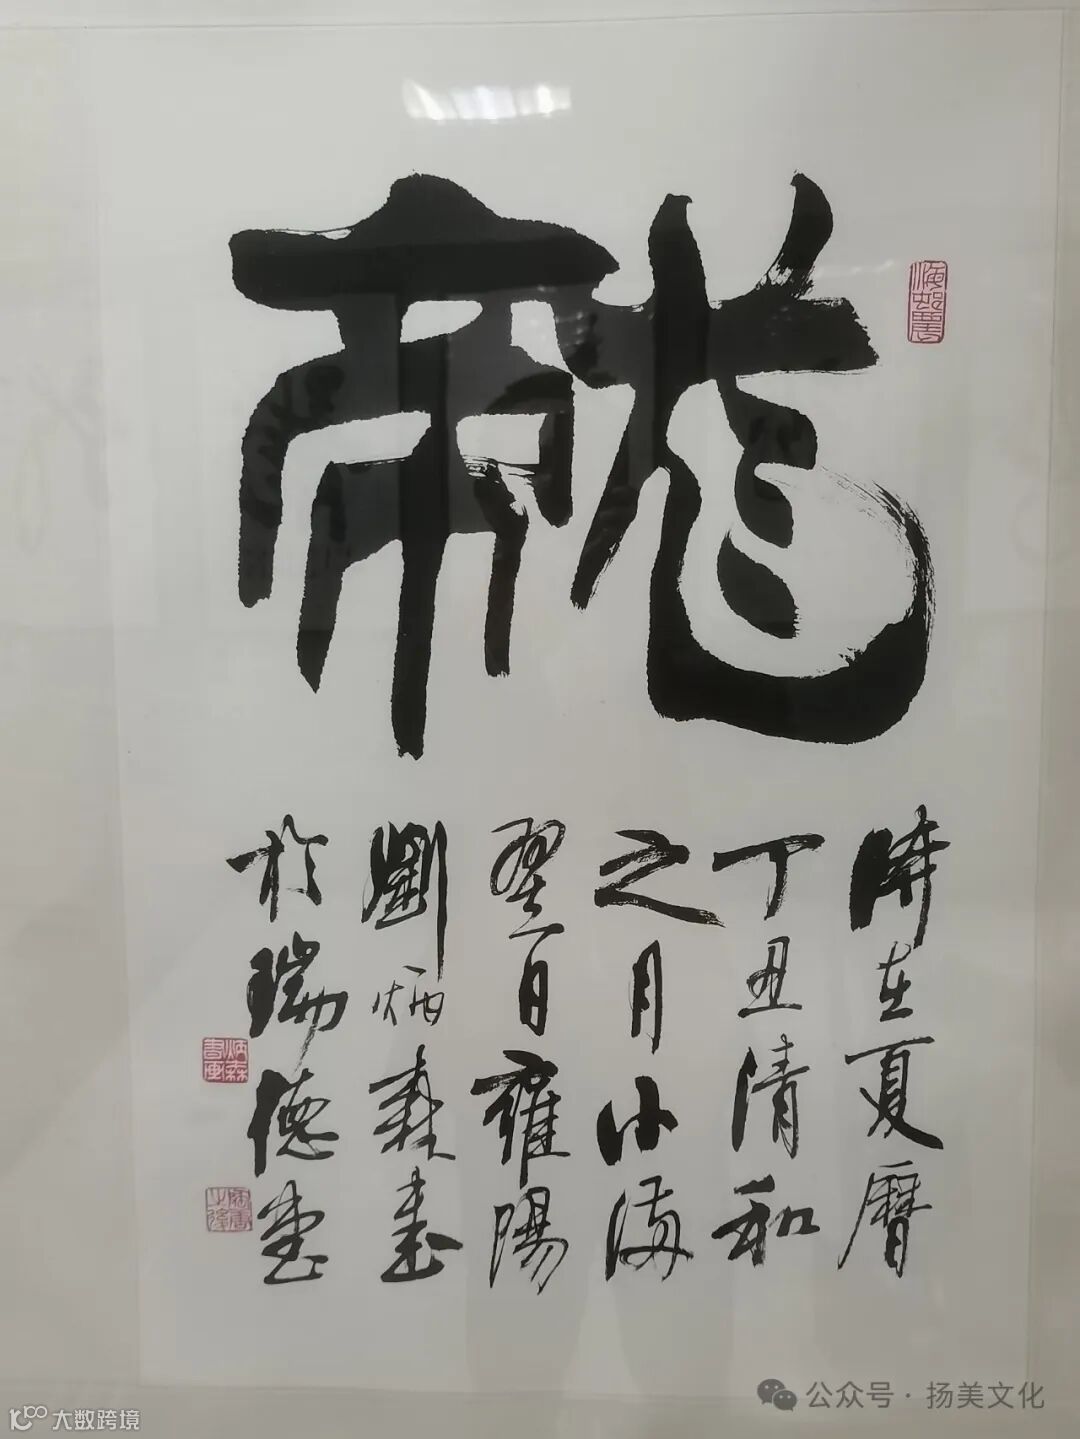 龍
時在夏曆
丁丑清和
之月小滿
翌日雍陽
劉炳森書
於瑞德堂
炳森書畫
公众号·扬美文化
大数跨境